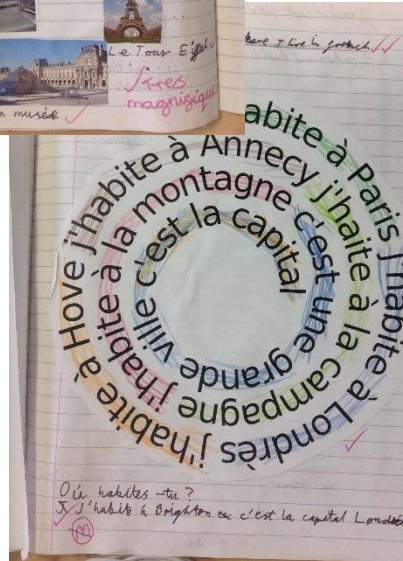 Le Tour Eiffel
Très
magnifique
musée
I live in french
abite à Paris j'habite à Londrès j'habite à Hove j'habite à Annecy j'haite à la campagne j'habite à la montagne c'est une grande ville c'est la capital
Où habites-tu?
J'habite à Brighton c'est la capital Londrès